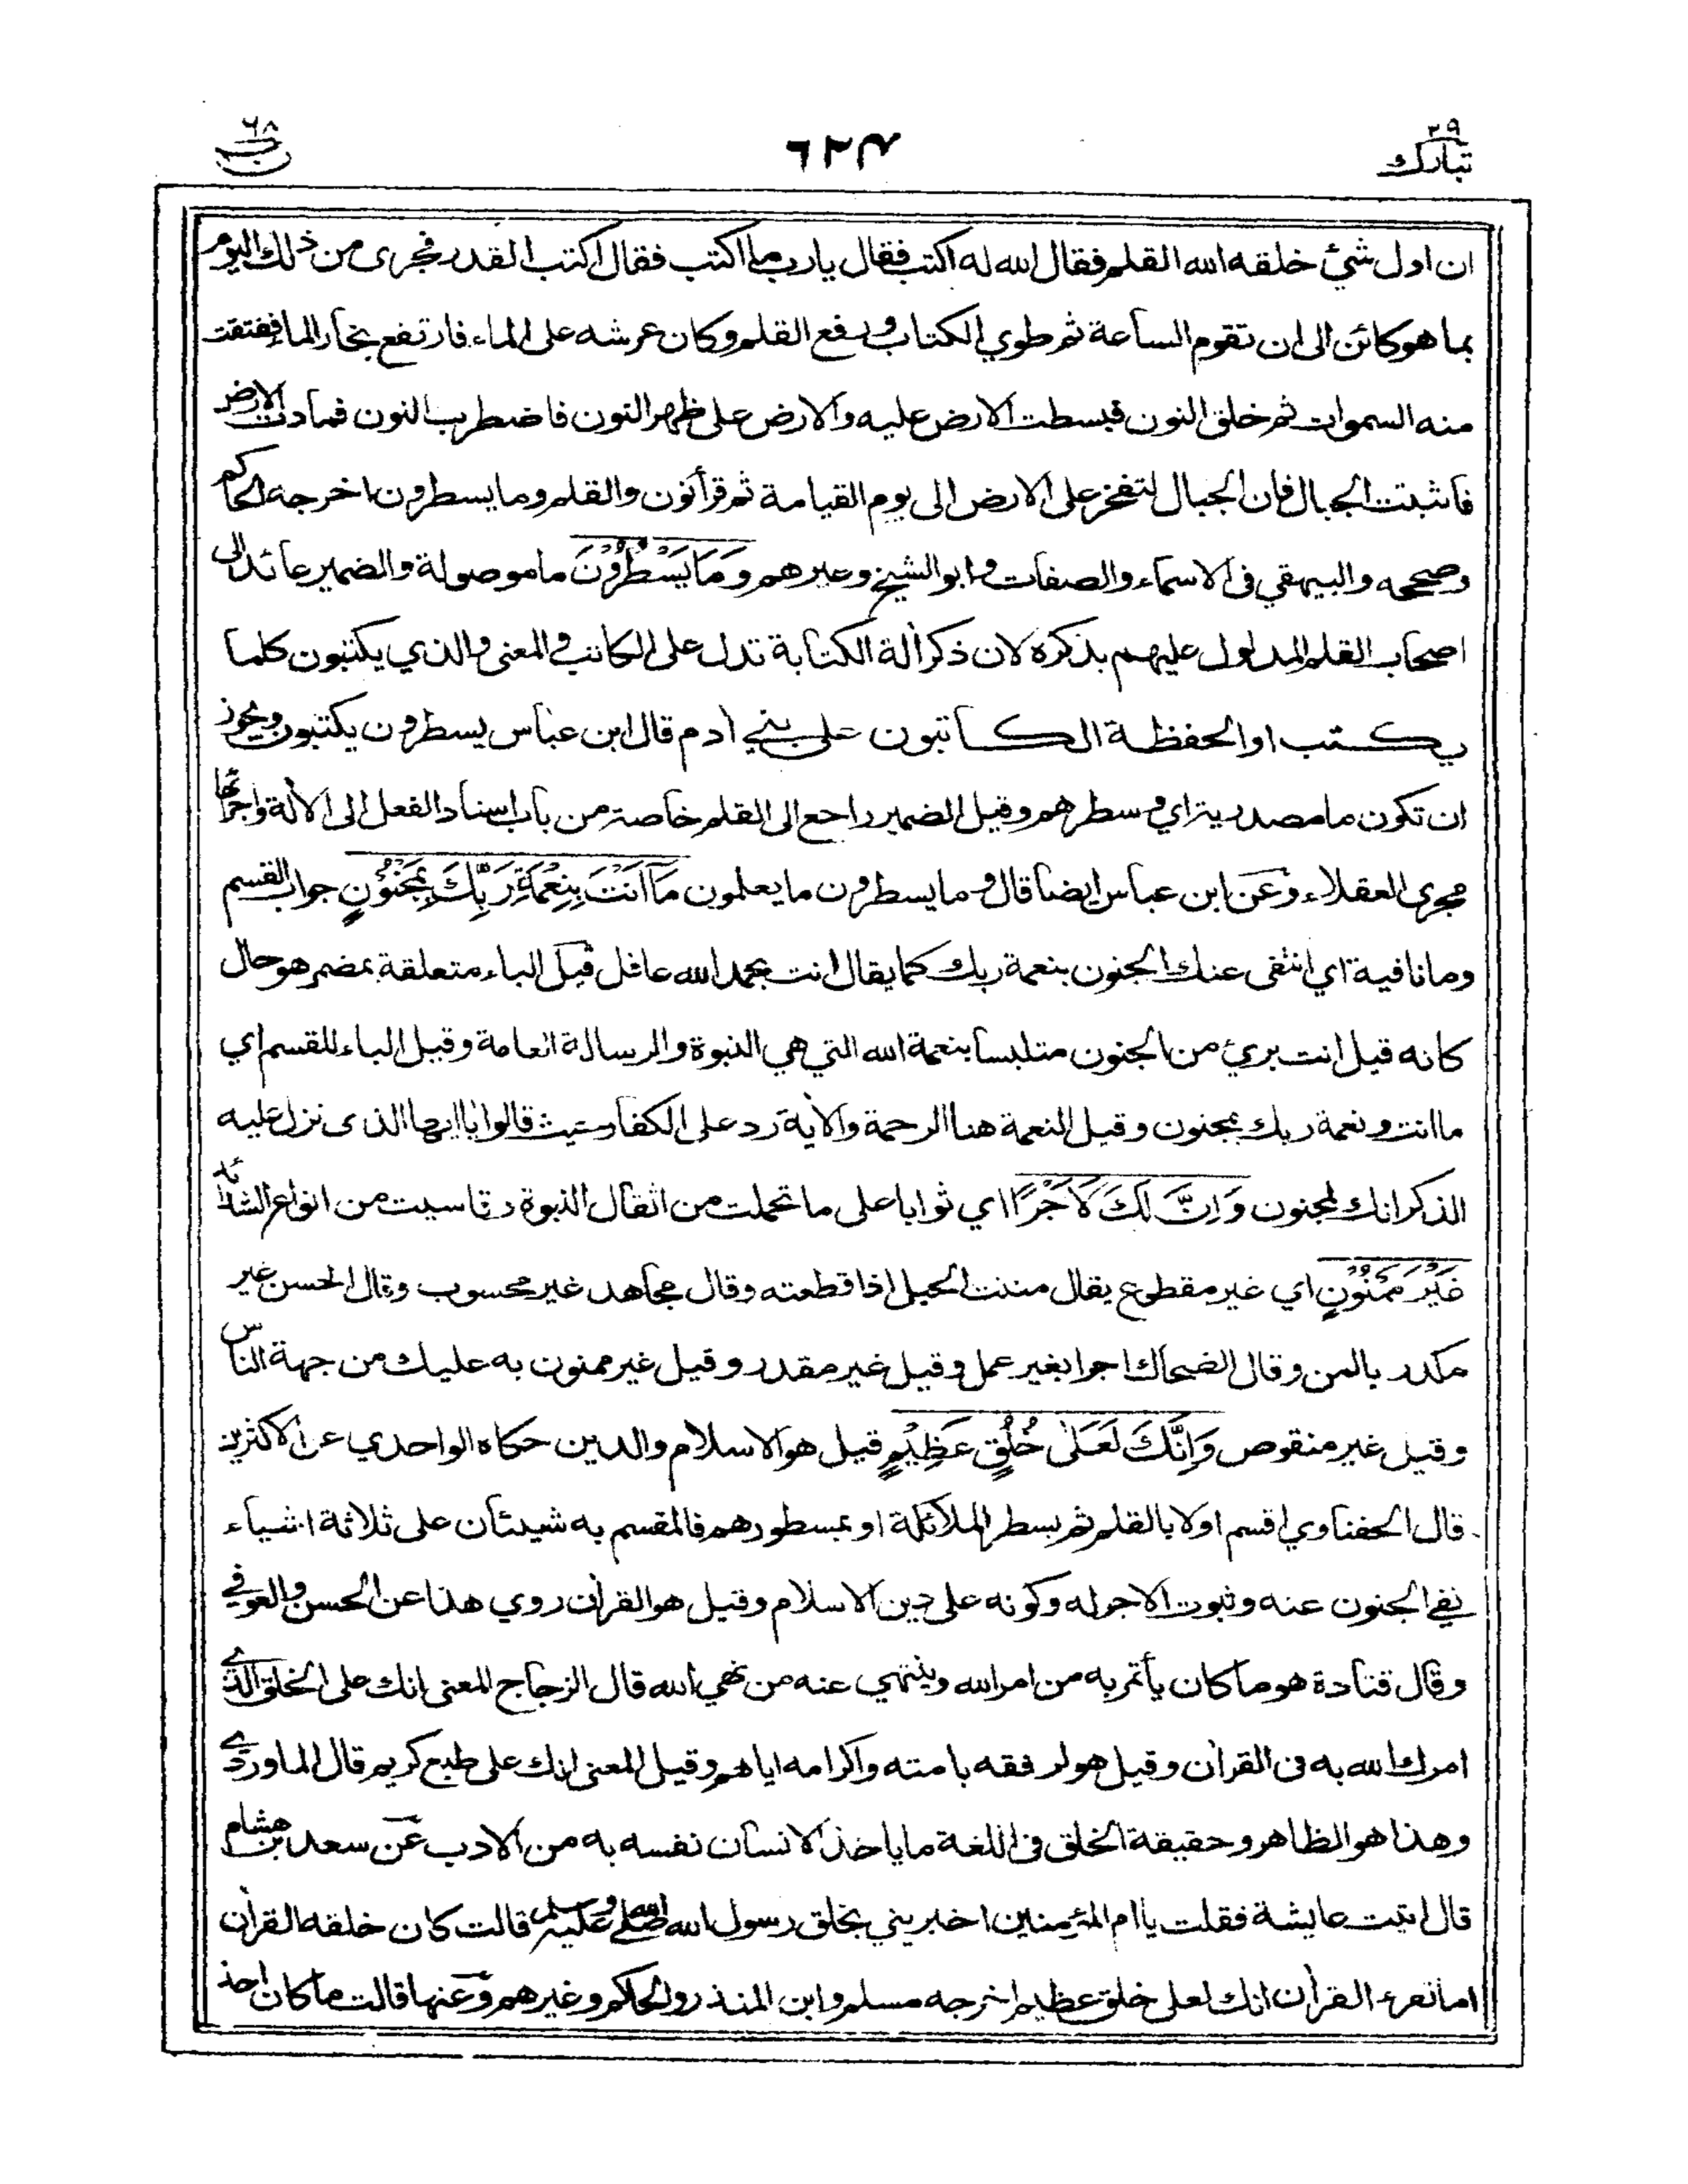 تبارك ٢٩
٤٢٦
ن ٦٨
ان اول شئ خلقه الله القلم فقال الله له اكتب فقال يا رب ما اكتب فقال اكتب القدر فجرى من ذلك اليوم
بما هو كائن الى ان تقوم الساعة ثم طوي الكتاب ورفع القلم وكان عرشه على الماء فارتفع بخار الماء ففتقت
منه السموات ثم خلق النون فبسطت الارض عليه والارض على ظهر النون فاضطرب النون فمادت الارض
فاثبتت الجبال فان الجبال لتفخر على الارض الى يوم القيامة ثم قرأ نون والقلم وما يسطرون اخرجه الحاكم
وصححه والبيهقي في الاسماء والصفات وابو الشيخ وغيرهم وَمَا يَسْطُرُوْنَ ما موصولة والضمير عائد الى
اصحاب القلم المدلول عليهم بذكره لان ذكر ألة الكتابة تدل على الكاتب والمعنى والذي يكتبون كلما
يكتب او الحفظة الكاتبون على بني أدم قال ابن عباس يسطرون يكتبون ويجوز
ان تكون ما مصدرية اي وسطرهم وقيل الضمير راجع الى القلم خاصة من باب اسناد الفعل الى الألة واجرائها
مجرى العقلاء وعن ابن عباس ايضا قال وما يسطرون ما يعلمون مَآ اَنْتَ بِنِعْمَةِ رَبِّكَ بِمَجْنُوْنٍ جواب القسم
وما نافية اي انتفى عنك الجنون بنعمة ربك كما يقال انت بحمد الله عاقل قيل الباء متعلقة بمضمر هو حال
كانه قيل انت برئ من الجنون متلبسا بنعمة الله التي هي النبوة والرسالة العامة وقيل الباء للقسم اي
ما انت ونعمة ربك بمجنون وقيل النعمة هنا الرحمة والأية رد على الكفار حيث قالوا يا ايها الذى نزل عليه
الذكر انك لمجنون وَاِنَّ لَكَ لَاَجْرًا اي ثوابا على ما تحملت من اثقال النبوة وقاسيت من انواع الشدائد
غَيْرَ مَمْنُوْنٍ اي غير مقطوع يقال مننت الحبل اذا قطعته وقال مجاهد غير محسوب وقال الحسن غير
مكدر بالمن وقال الضحاك اجرا بغير عمل وقيل غير مقدر وقيل غير ممنون به عليك من جهة الناس
وقيل غير منقوص وَاِنَّكَ لَعَلٰى خُلُقٍ عَظِيْمٍ قيل هو الاسلام والدين حكاه الواحدي عن الاكثرين
قال الحفناوي اقسم اولا بالقلم ثم بسطر الملائكة او بمسطورهم فالمقسم به شيئان على ثلاثة اشياء
نفي الجنون عنه وثبوت الاجر له وكونه على دين الاسلام وقيل هو القرأن روي هذا عن الحسن والعوفي
وقال قتادة هو ما كان يأتمر به من امر الله وينتهي عنه من نهي الله قال الزجاج المعنى انك على الخلق الذي
امرك الله به فى القرأن وقيل هو لرفقه بامته واكرامه اياهم وقيل المعنى انك على طبع كريم قال الماوردي
وهذا هو الظاهر وحقيقة الخلق في اللغة ما ياخذ الانسان نفسه به من الادب عن سعد بن هشام
قال اتيت عايشة فقلت يا ام المؤمنين اخبريني بخلق رسول الله صلى الله عليه وسلم قالت كان خلقه القرأن
اما تقرء القرأن انك لعلى خلق عظيم اخرجه مسلم وابن المنذر والحاكم وغيرهم وعنها قالت ما كان احد